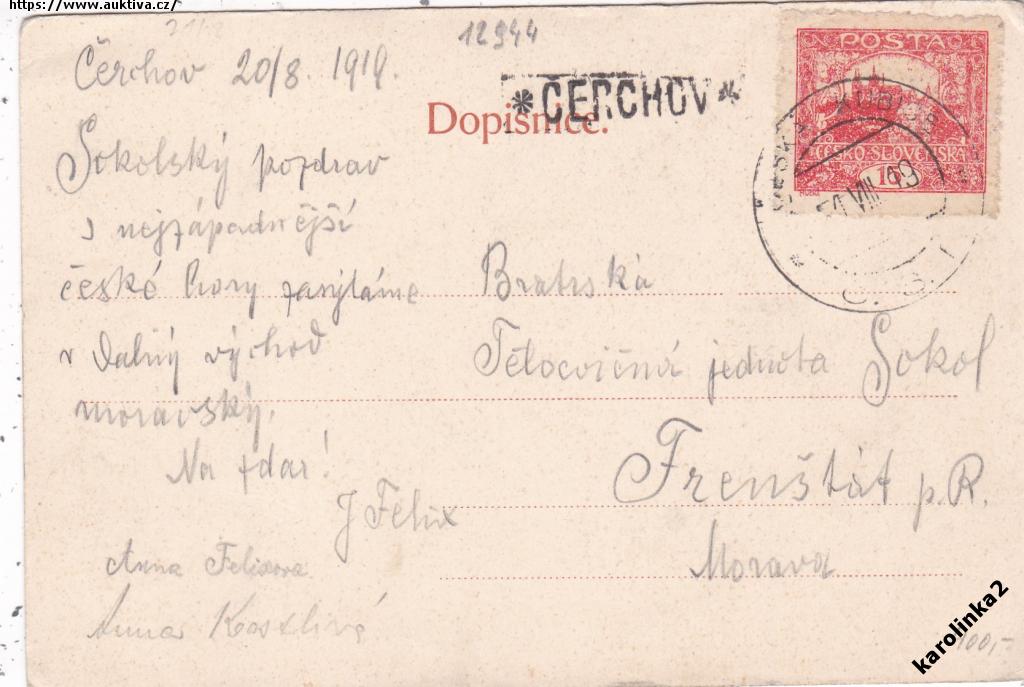 https://www.auktiva.cz/
12944
Čerchov 20/8. 1919.
Sokolský pozdrav
s nejzápadnější
české hory zasýláme
v dalný východ
moravský.
Na zdar!
J Felix
Anna Felixova
Anna
Dopisnice.
*ČERCHOV*
POŠTA
ČESKO-SLOVENSKÁ
10
VIII 19
Č. S.
Bratrská
Tělocvičná jednota Sokol
Frenštát p. R.
Morava
100,-
karolinka2